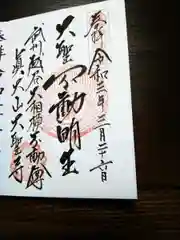 奉拝 令和三年三月二十六日
大聖不動明王
武州越谷大相模不動尊
真大山大聖寺